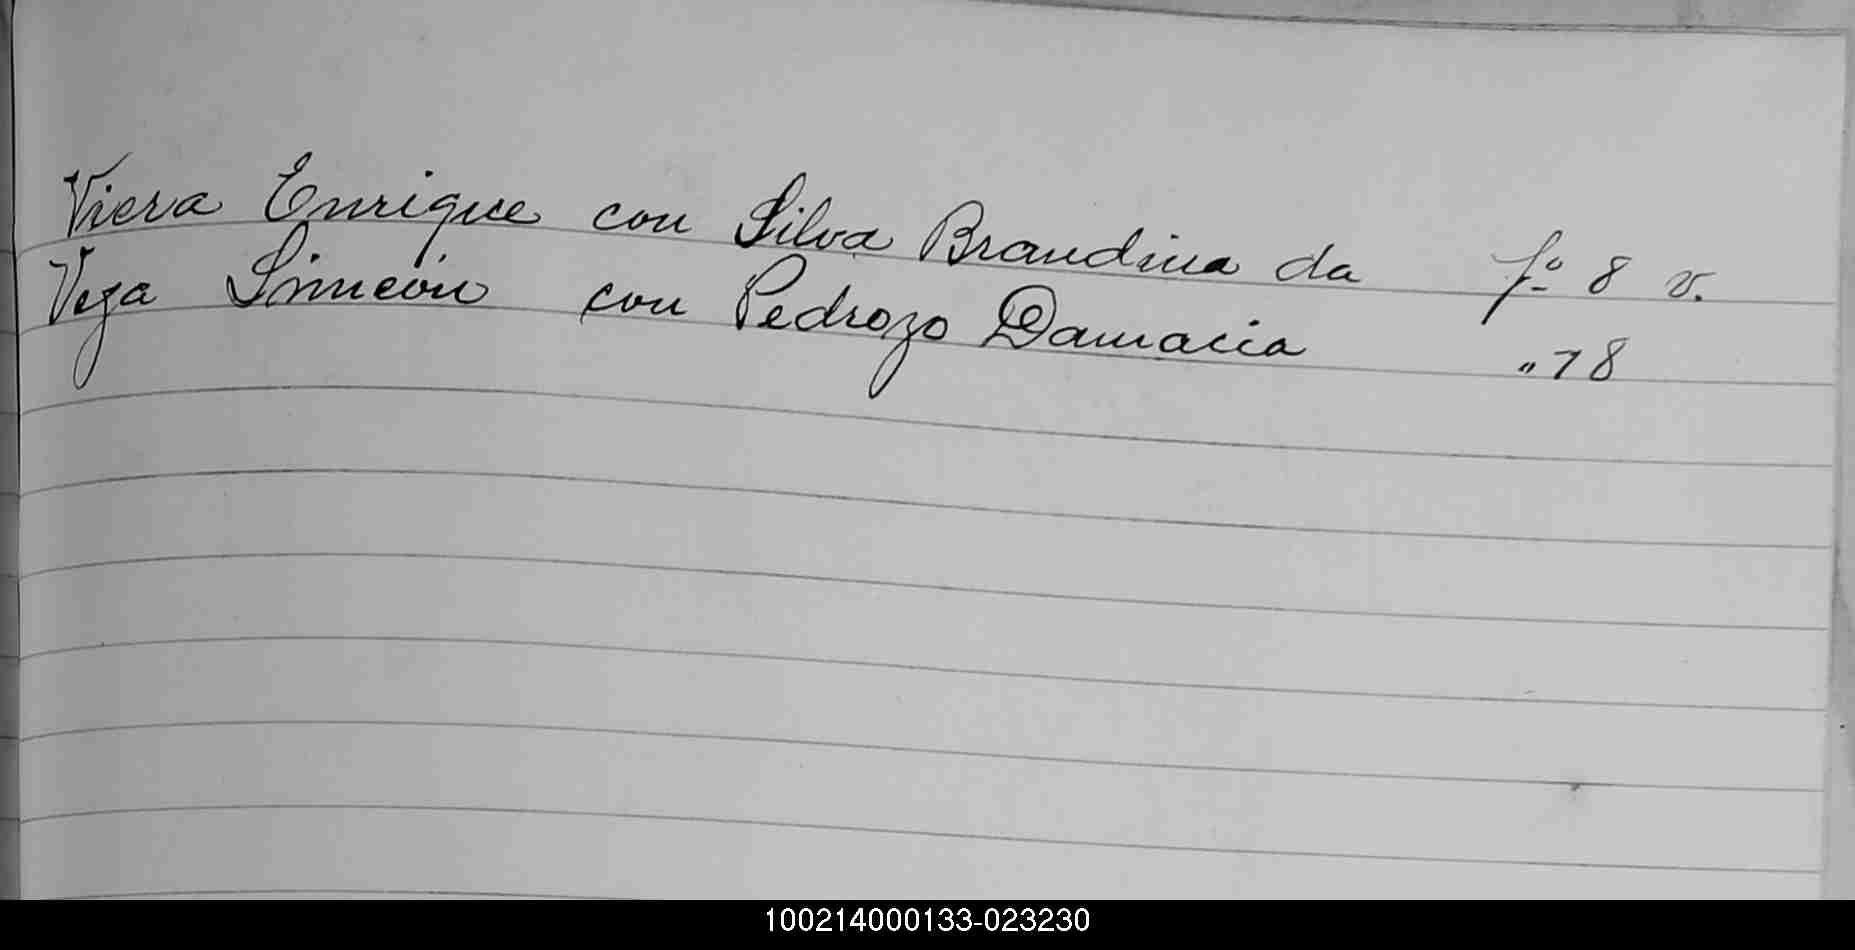 Viera Enrique con Silva Brandina da fº 8 v.
Vega Simeón con Pedrozo Damacia " 18
100214000133-023230